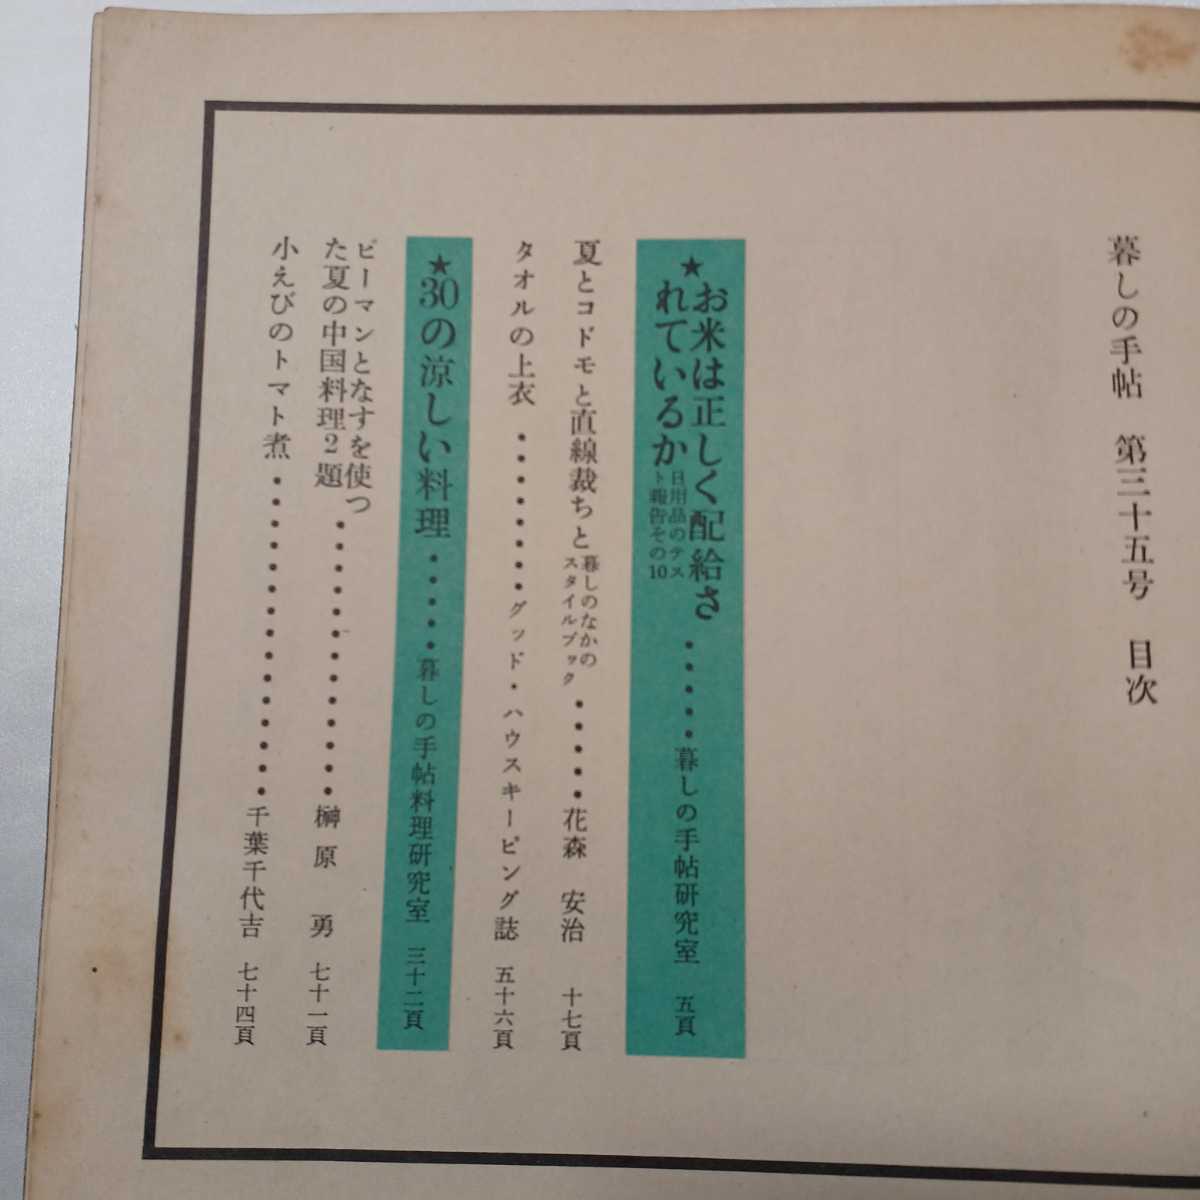 暮しの手帖 第三十五号 目次
★お米は正しく配給さ
れているか
日用品のテス
ト報告その10
・・・・・暮しの手帖研究室 五頁
夏とコドモと直線裁ちと
暮しのなかの
スタイルブック
・・・・・花森 安治 十七頁
タオルの上衣・・・・・・・・グッド・ハウスキーピング誌 五十六頁
★30の涼しい料理・・・・・暮しの手帖料理研究室 三十二頁
ピーマンとなすを使つ
た夏の中国料理2題
・・・・・・・・・・・・・榊原 勇 七十一頁
小えびのトマト煮・・・・・・・・・・・・・・・千葉千代吉 七十四頁